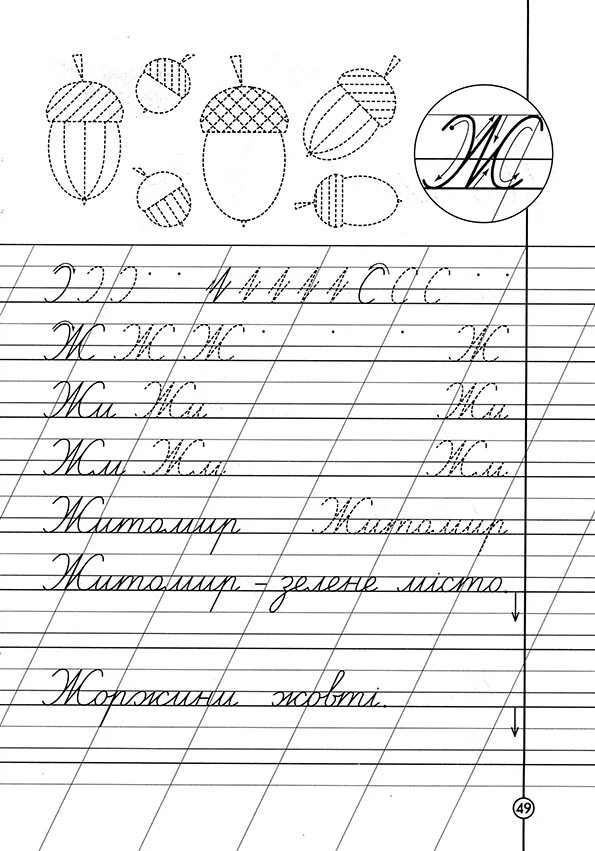 Ж
Ж Ж Ж Ж
Жи Жи Жи
Жм Жм Жм
Житомир Житомир
Житомир – зелене місто.
Жоржини жовті.
49